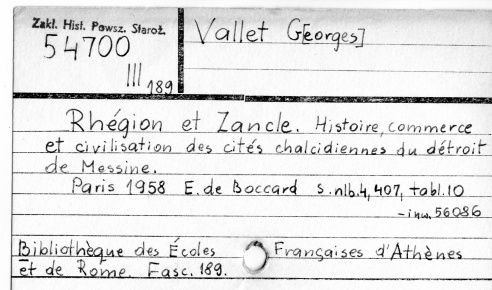 Zakł. Hist. Powsz. Staroż.
54700
III 189
Vallet G[eorges]
Rhégion et Zancle. Histoire, commerce
et civilisation des cités chalcidiennes du détroit
de Messine.
Paris 1958 E. de Boccard s. nlb. 4, 407, tabl. 10
- inw. 56086
Bibliothèque des Écoles Françaises d'Athènes
et de Rome. Fasc. 189.